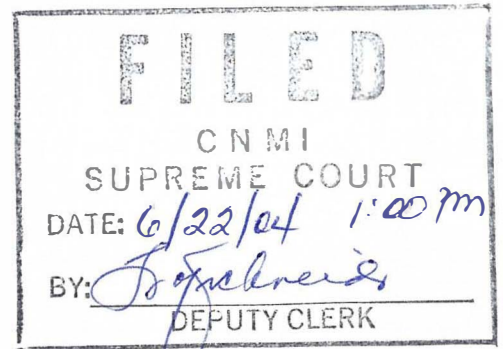 FILED
CNMI
SUPREME COURT
DATE: 6/22/04 1:00 pm
BY:
DEPUTY CLERK